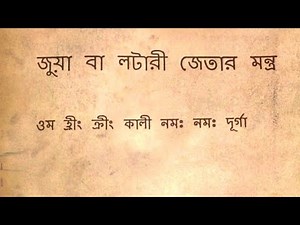 জুয়া বা লটারী জেতার মন্ত্র
ওম হ্রীং ক্রীং কালী নমঃ নমঃ দূর্গা